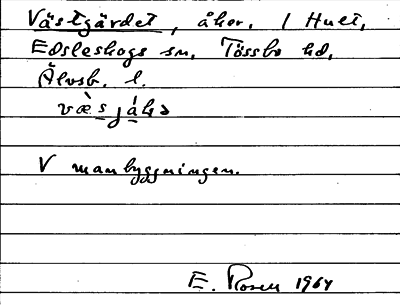 Västgärdet, åker, 1 Hult,
Edsleskogs sn, Tössbo hd,
Älvsb. l.
V manbyggningen.
E. Rosen 1964